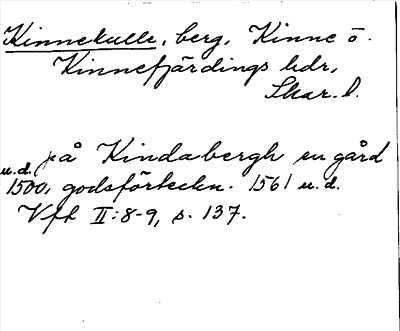 Kinnekulle, berg, Kinne o.
Kinnefjärdings hdr,
Skar. l.
på Kindabergh en gård
u.d. 1500, godsförteckn. 1561 u.d.
Vft II:8-9, s. 137.